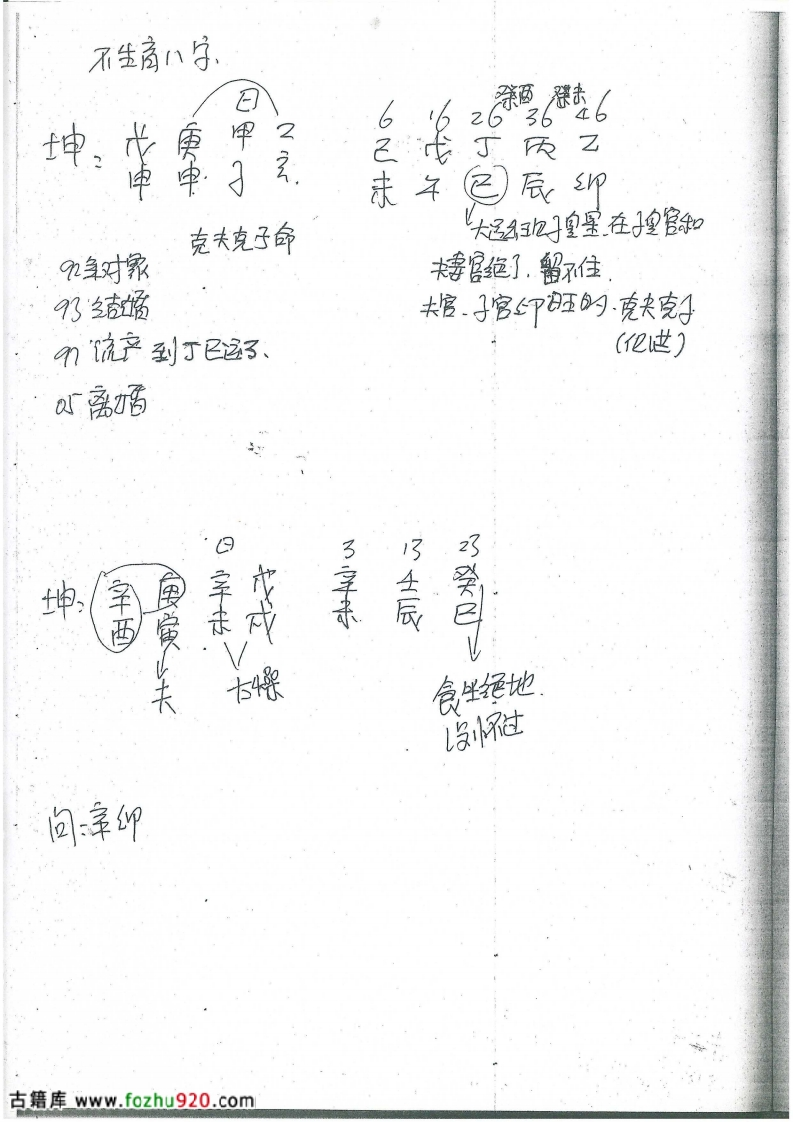 不生育八字
日
坤: 戊 庚 甲 乙
申 申 子 亥
癸酉 癸未
6 16 26 36 46
己 戊 丁 丙 乙
未 午 巳 辰 卯
克夫克子命
92年对象
93结婚
97流产到丁巳运了、
05离婚
大运到了子星 在子宫和
夫妻宫绝了,留不住
夫宫、子宫 旺的、克夫克子
日
坤: 辛 庚 辛 戊
酉 寅 未 戌
3 13 23
辛 壬 癸
未 辰 巳
夫
太燥
食坐绝地
没怀过
问:辛卯
古籍库 www.fozhu920.com